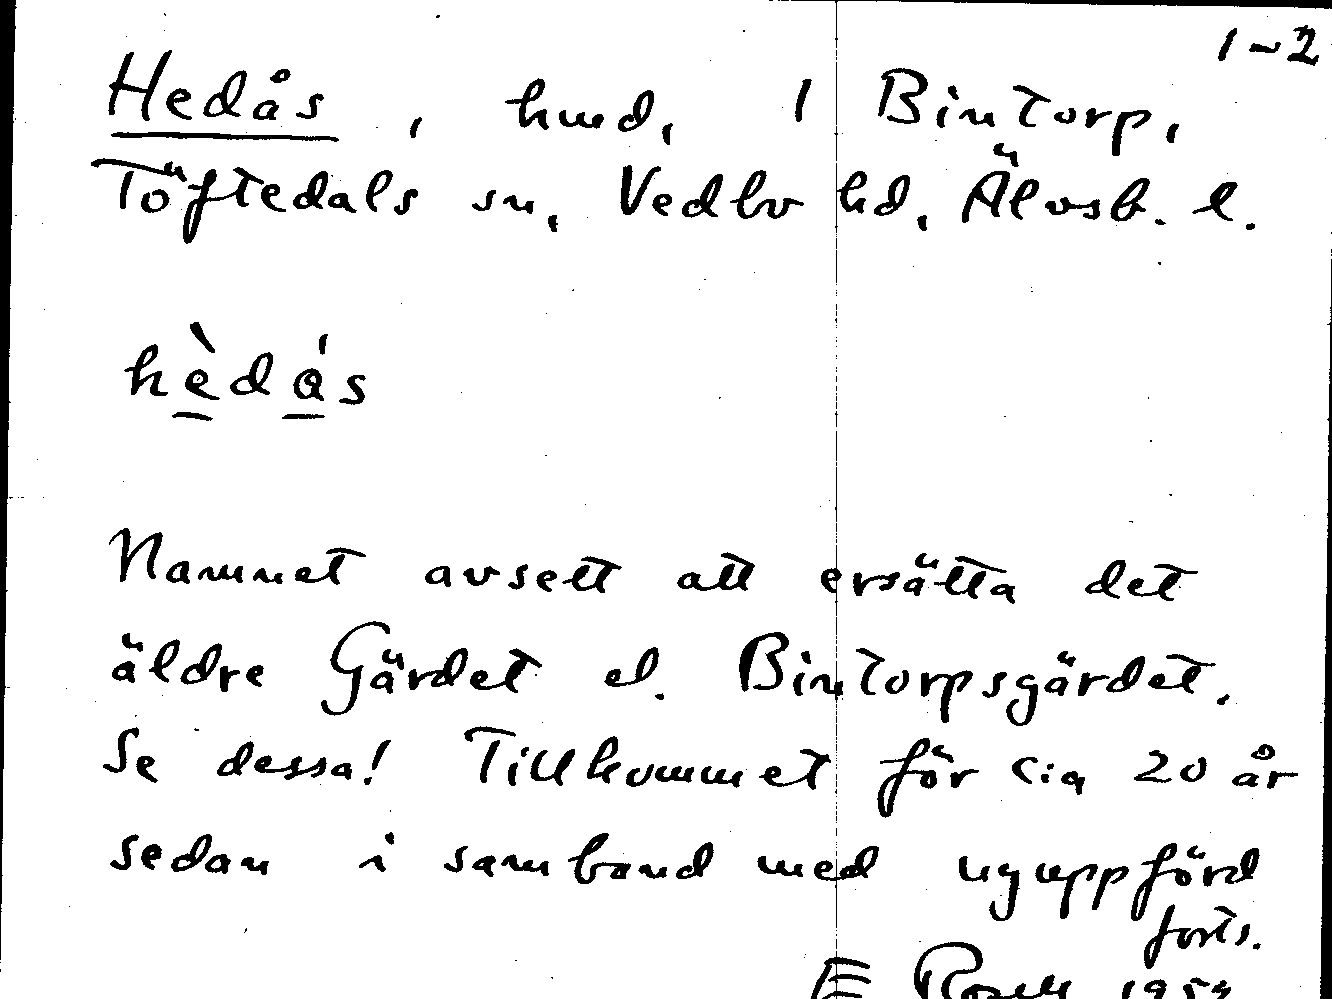 1-2
Hedås, hmd, 1 Bintorp,
Töftedals sn, Vedbo hd, Älvsb. l.
hèdás
Namnet avsett att ersätta det
äldre Gärdet el. Bintorpsgärdet.
Se dessa! Tillkommet för c:a 20 år
sedan i samband med nyuppförd
forts.
E 195